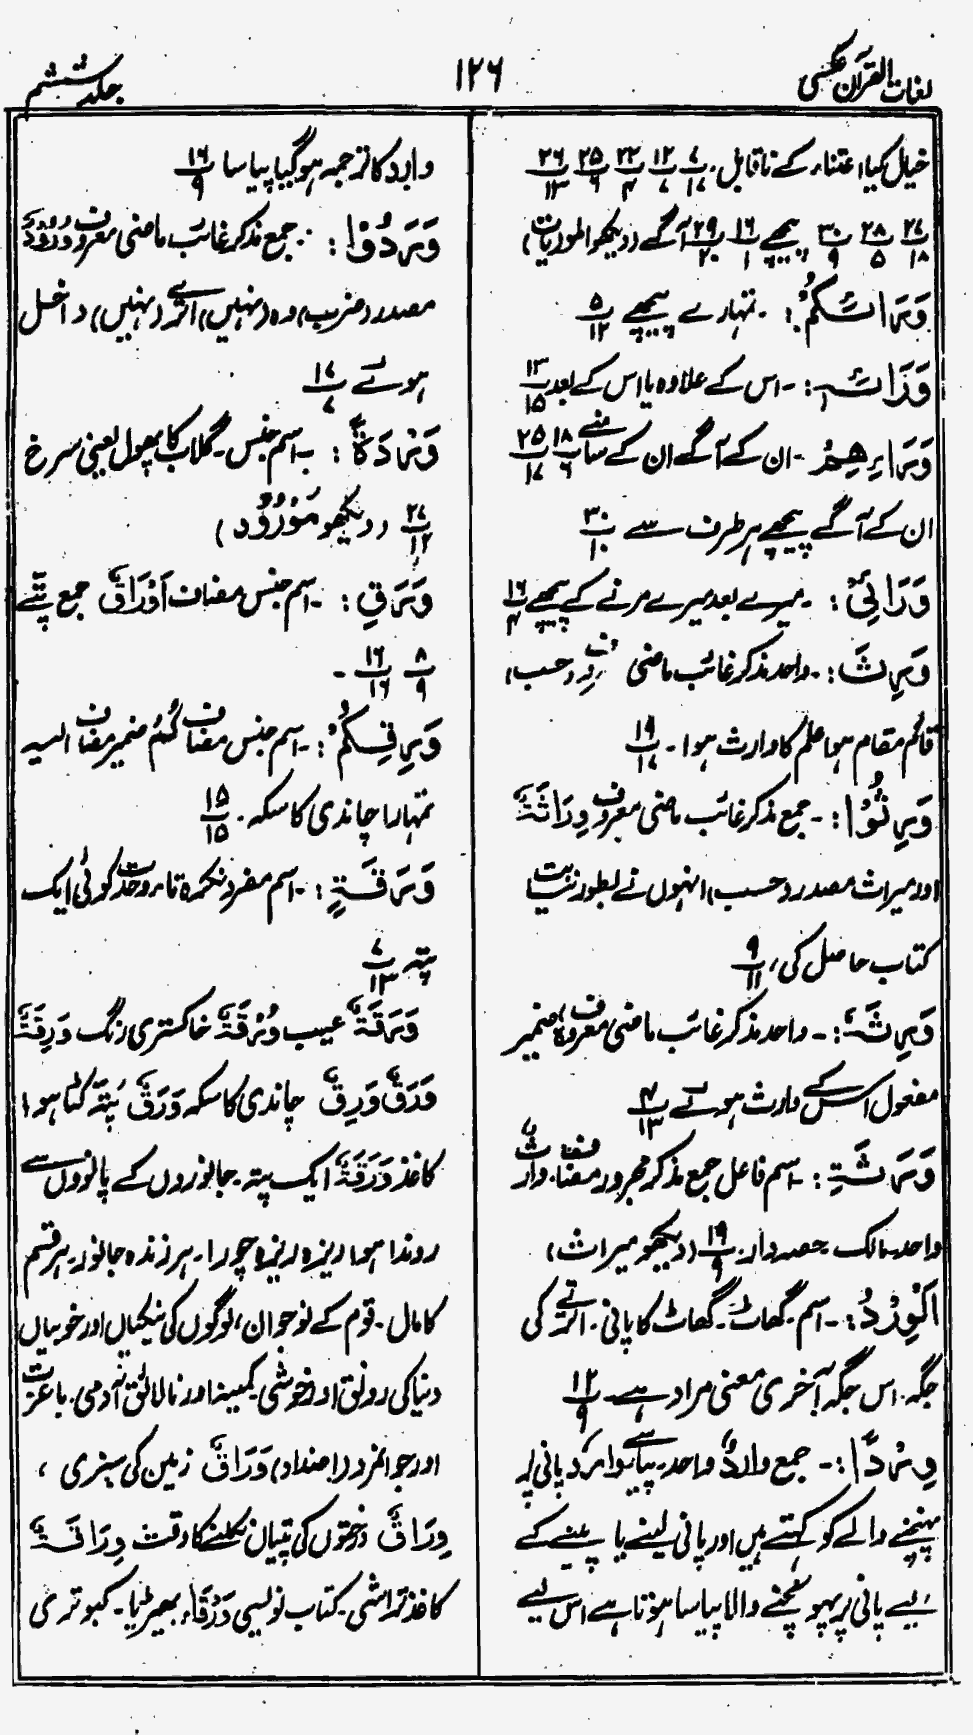 لغات القرآن عکسی
۱۲۶
جلد ششم
خیال کیا اعتناء کے ناقابل. ۷/۱۷ ۱۲/۷ ۲۲/۴ ۲۵/۶ ۲۶/۱۳
۲۷/۱۸ ۲۸/۵ ۳۰/۹ پیچھے ۱۶/۱ ۲۹/۲۰ آگے (دیکھو الموریات)
وَرَائَكُمْ: ۔ تمہارے پیچھے ۵/۱۲
وَرَائَہٗ: ۔ اس کے علاوہ یا اس کے بعد ۱۳/۱۵
وَرَاءِهِمْ ۔ ان کے آگے ان کے سامنے ۱۸/۶ ۲۵/۱۷
ان کے آگے پیچھے ہر طرف سے ۳۰/۱۰
وَرَائِیْ: ۔ میرے بعد میرے مرنے کے پیچھے ۱۶/۴
وَرِثَ: ۔ واحد مذکر غائب ماضی (حسب)
قائم مقام ہوا علم کا وارث ہوا ۔ ۱۹/۱۷
وَرِثُوْا: ۔ جمع مذکر غائب ماضی معروف وِرَاثَةٌ
اور میراث مصدر (حسب) انہوں نے بطور تربیت
کتاب حاصل کی، ۹/۱۱
وَرِثَهٗ: ۔ واحد مذکر غائب ماضی معروف ہٗ ضمیر
مفعول اس کے وارث ہوئے ۴/۱۳
وَرَثَةِ: ۔ اسم فاعل جمع مذکر مجرور مضاف. وارث
واحد. مالک حصہ دار. ۱۹/۹ (دیکھو میراث)
اَلْوِرْدُ: ۔ اسم. گھاٹ ۔ گھاٹ کا پانی ۔ اترنے کی
جگہ. اس جگہ آخری معنی مراد ہے ۔ ۱۲/۹
وِرْدًا: ۔ جمع وارِدٌ واحد. پیاسے وارد پانی پر
پہنچنے والے کو کہتے ہیں اور پانی لینے یا پینے کے
لیے پانی پر پہونچنے والا پیاسا ہوتا ہے اس لیے
وارد کا ترجمہ ہو گیا پیاسا ۱۶/۹
وَرَدُوْا: ۔ جمع مذکر غائب ماضی معروف وُرُوْدٌ
مصدر (ضرب) وہ (نہیں) اترے (نہیں) داخل
ہوئے ۱۷/۷
وَرْدَةً: ۔ اسم جنس ۔ گلاب کا پھول یعنی سرخ
۲۷/۱۲ (دیکھو مَوْرُوْد)
وَرَقِ: ۔ اسم جنس مضاف اَوْرَاقٌ جمع پتّے
۸/۹ ۱۶/۱۶ ۔
وَرِقِكُمْ: ۔ اسم جنس مضاف كُمْ ضمیر مضاف الیہ
تمہارا چاندی کا سکہ. ۱۵/۱۵
وَرَقَةٍ: ۔ اسم مفرد نکرہ تاء وحدت کوئی ایک
پتہ ۷/۱۳
وَرَقَةٌ عیب وُرْقَةٌ خاکستری رنگ وَرِقَةٌ
وَرَقٌ وَرِقٌ چاندی کا سکہ وَرَقٌ پَتّہ کٹا ہوا
کاغذ وَرَقَةٌ ایک پتہ. جانوروں کے پانوؤں سے
روندا ہوا ریزہ ریزہ چورا ۔ ہر زندہ جانور. ہر قسم
کا مال ۔ قوم کے نوجوان، لوگوں کی نیکیاں اور خوبیاں
دنیا کی رونق اور خوشی. کمینہ اور نالائق آدمی. با عزت
اور جوانمرد (اضداد) وَرَاقٌ زمین کی سبزی ،
وِرَاقٌ درختوں کی پتیاں نکلنے کا وقت وِرَاقَةٌ
کاغذ تراشی. کتاب نویسی وَرْقَاءُ بھیڑیا ۔ کبوتری